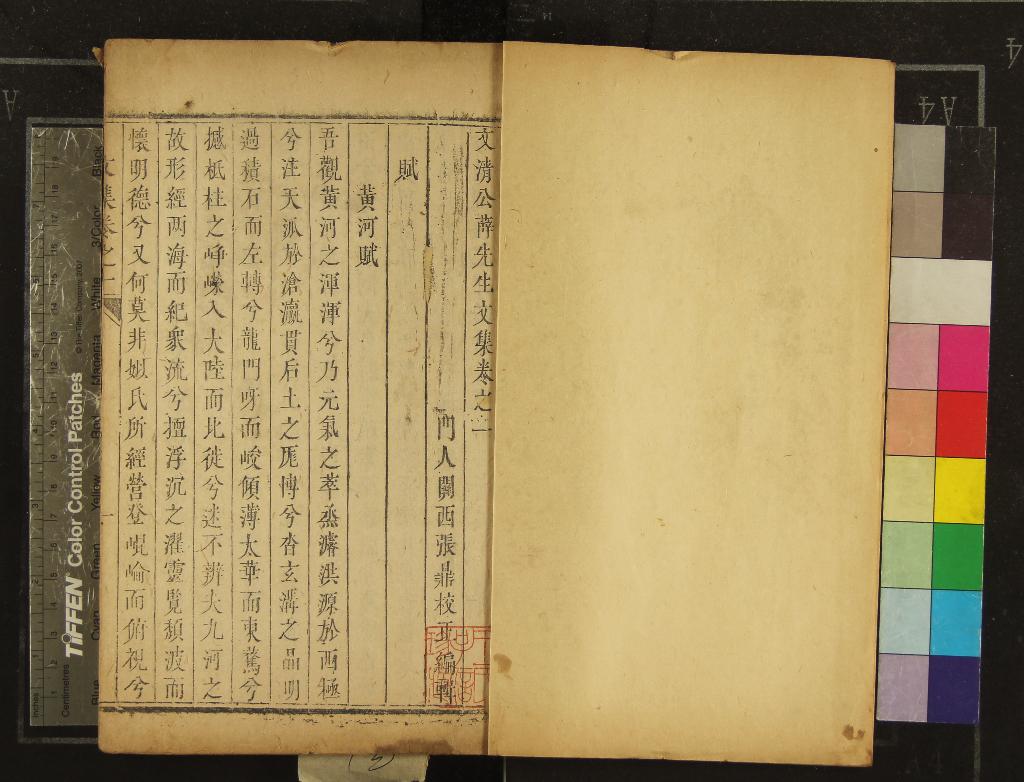 文清公薛先生文集卷之一
門人關西張鼎校正編輯
賦
黃河賦
吾觀黃河之渾渾兮乃元氣之萃蒸濬洪源於西極
兮注天派於滄瀛貫后土之厖博兮沓玄溝之晶明
過積石而左轉兮龍門呀而峻傾薄太華而東騖兮
撼砥柱之崢嶸入大陸而北徙兮迷不辨夫九河之
故形經两海而紀衆流兮擅浮沉之濯靈覽頹波而
懷明德兮又何莫非姒氏所經營登崐崘而俯視兮
文集卷之一
一
TIFFEN Color Control Patches
© The Tiffen Company, 2007
Centimetres
Inches
Blue
Cyan
Green
Yellow
Red
Magenta
White
3/Color
Black
A4